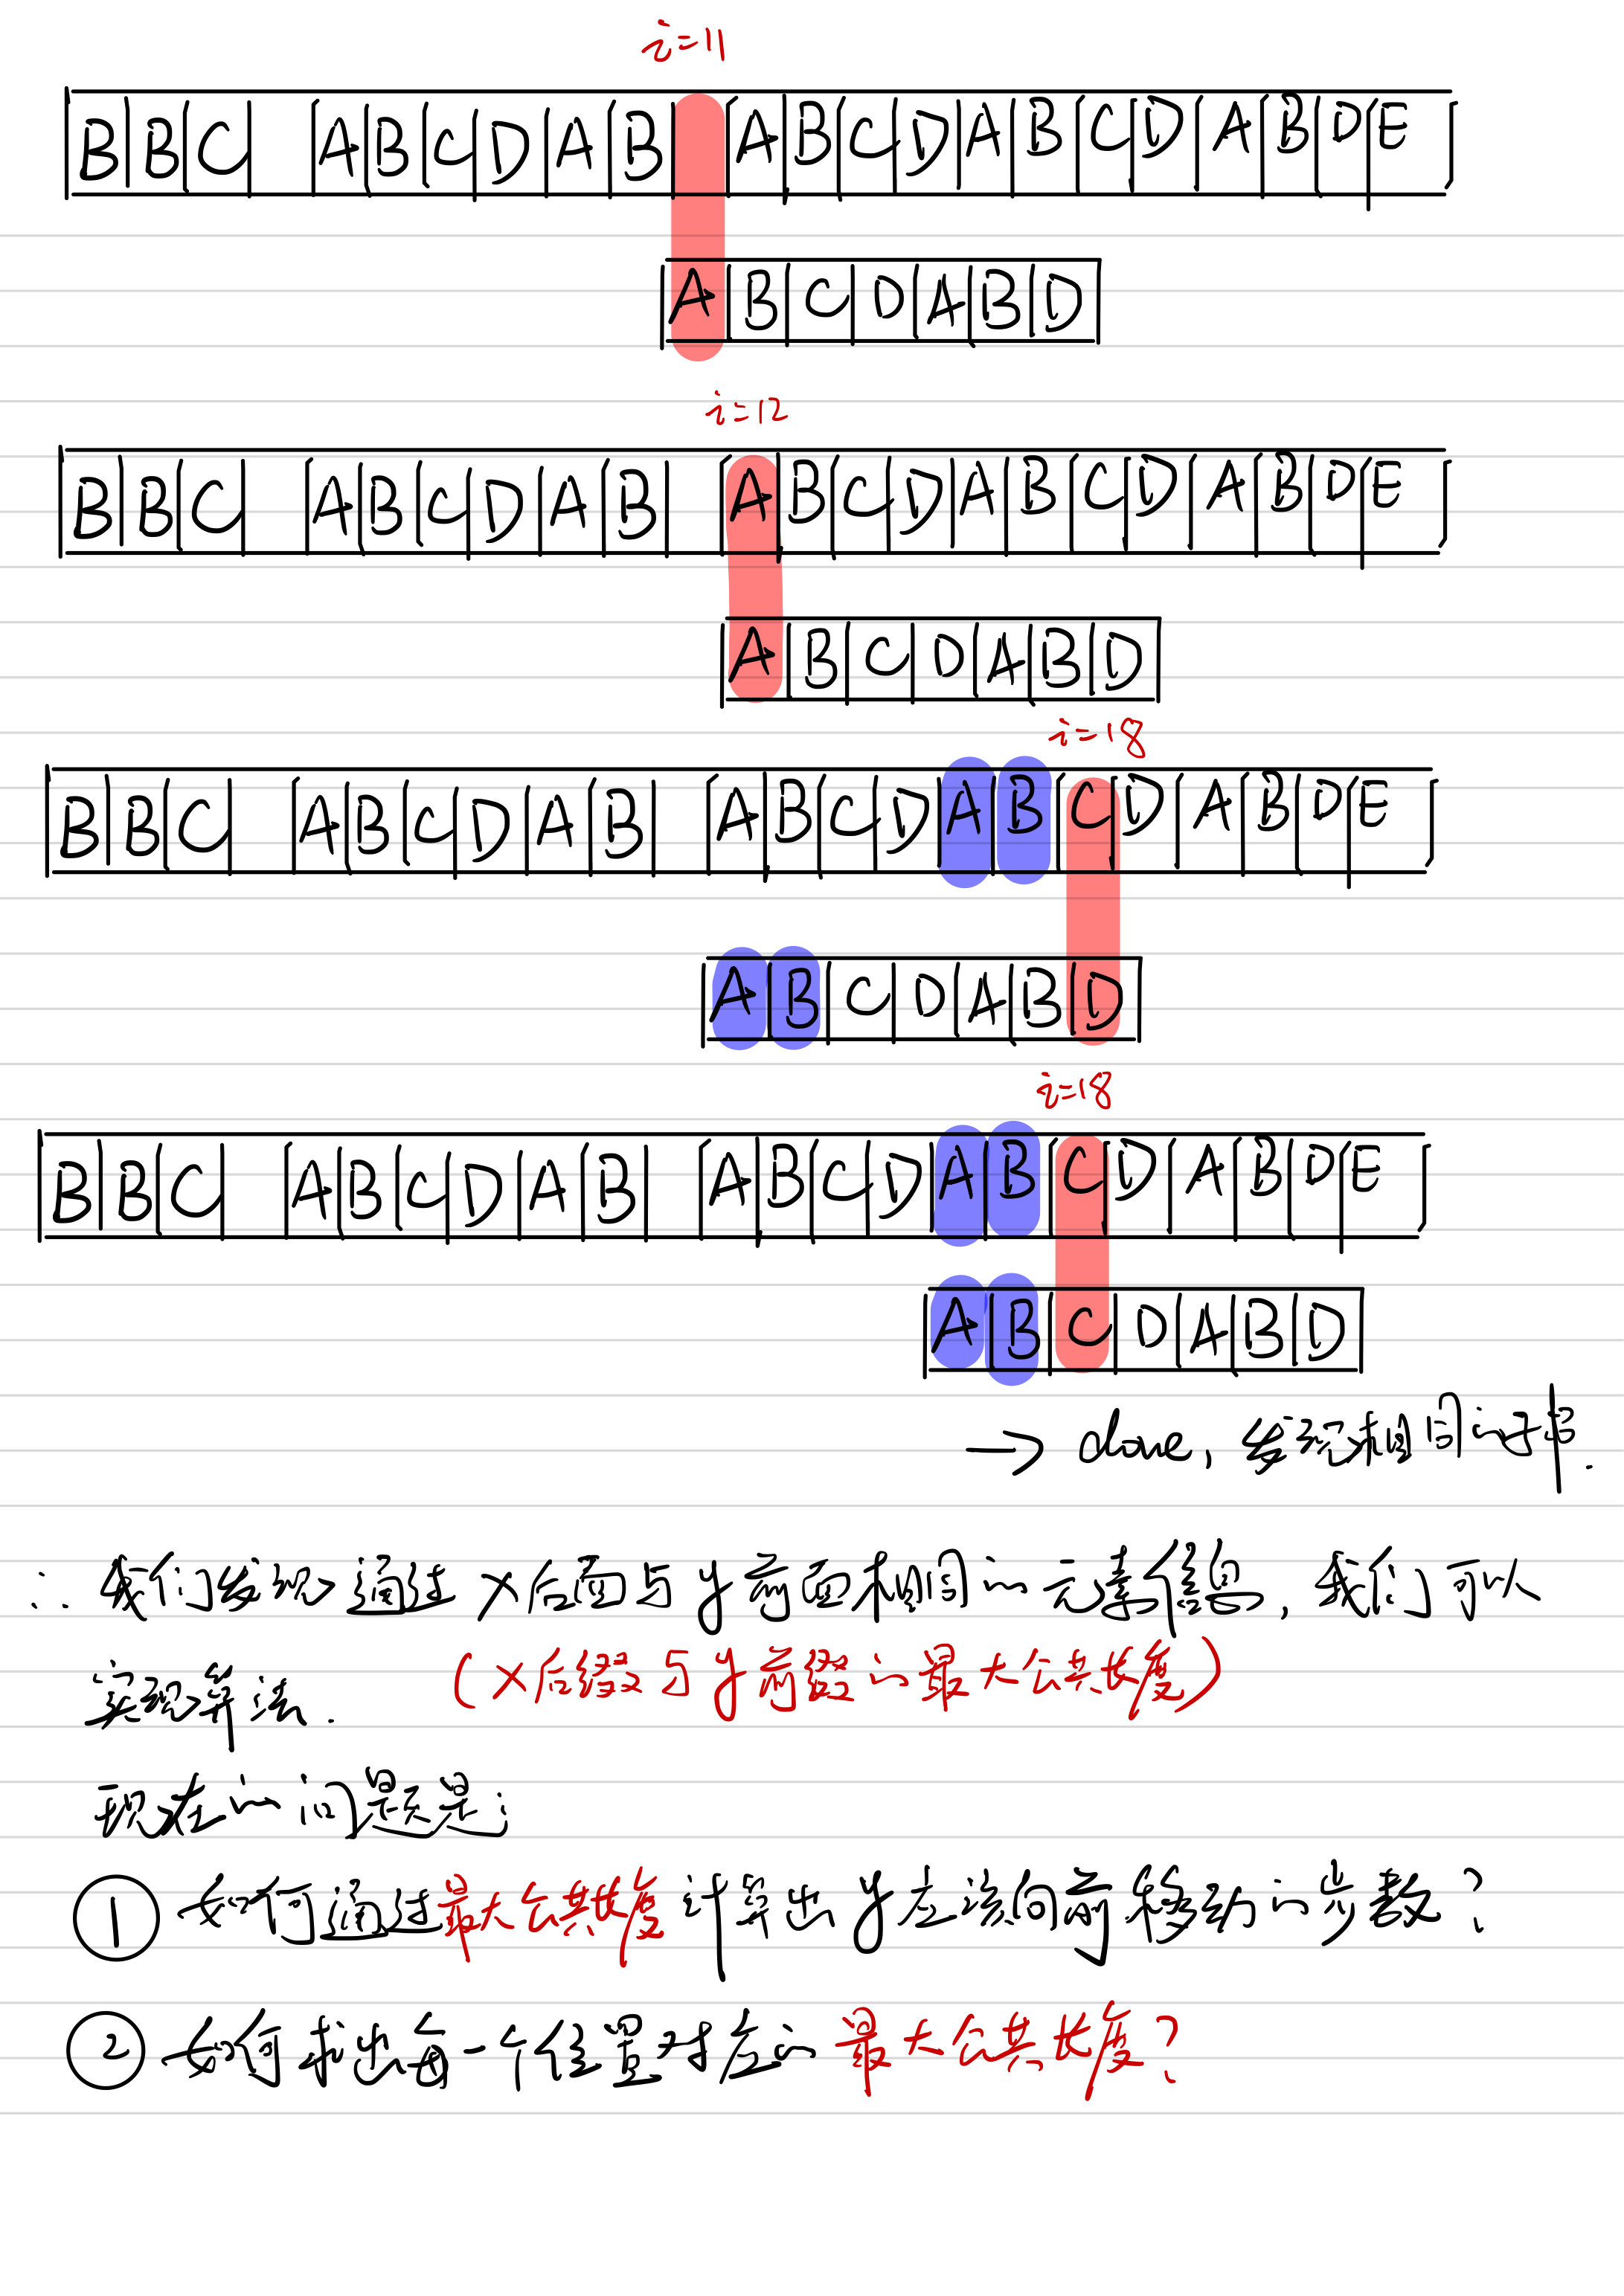 i=11
B B C A B C D A B A B C D A B C D A B D E
A B C D A B D
i=12
B B C A B C D A B A B C D A B C D A B D E
A B C D A B D
i=18
B B C A B C D A B A B C D A B C D A B D E
A B C D A B D
i=18
B B C A B C D A B A B C D A B C D A B D E
A B C D A B D
→ done, 发现相同的子串.
∴ 我们发现通过 X后面与y前面相同的元素信息, 我们可以
实现算法. (X后缀与y前缀的最大公共长度)
现在的问题是:
① 如何通过最大公共长度计算出y应该向前移动的步数?
② 如何求出每一个位置对应的最大公共长度?